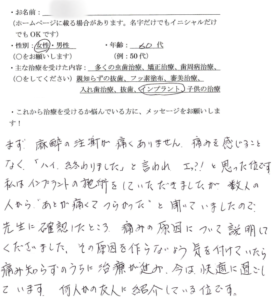 ・お名前：
（ホームページに載る場合があります。名字だけでもイニシャルだけ
でもOKです）
・性別：女性・男性　・年齢：60 代
（○をお願いします）　（例：50代）
・主な治療を受けた内容： 多くの虫歯治療、矯正治療、歯周病治療、
（○をしてください） 親知らずの抜歯、フッ素塗布、審美治療、
入れ歯治療、抜歯、インプラント 子供の治療
・これから治療を受けるか悩んでいる方に、メッセージをお願いしま
す！
まず 麻酔の注射が痛くありません。痛みを感じること
なく、「ハイ、終わりました」と言われ エッ?! と思った位です
私はインプラントの施術をしていただきましたが 数人の
人から "あとが痛くてつらかった" と聞いていましたので
先生に確認したところ 痛みの原因について説明して
くださいました。その原因を作らないよう 気を付けていたら
痛み知らずのうちに治療が進み、今は快適に過ごし
ています。 何人かの友人に紹介している位です。